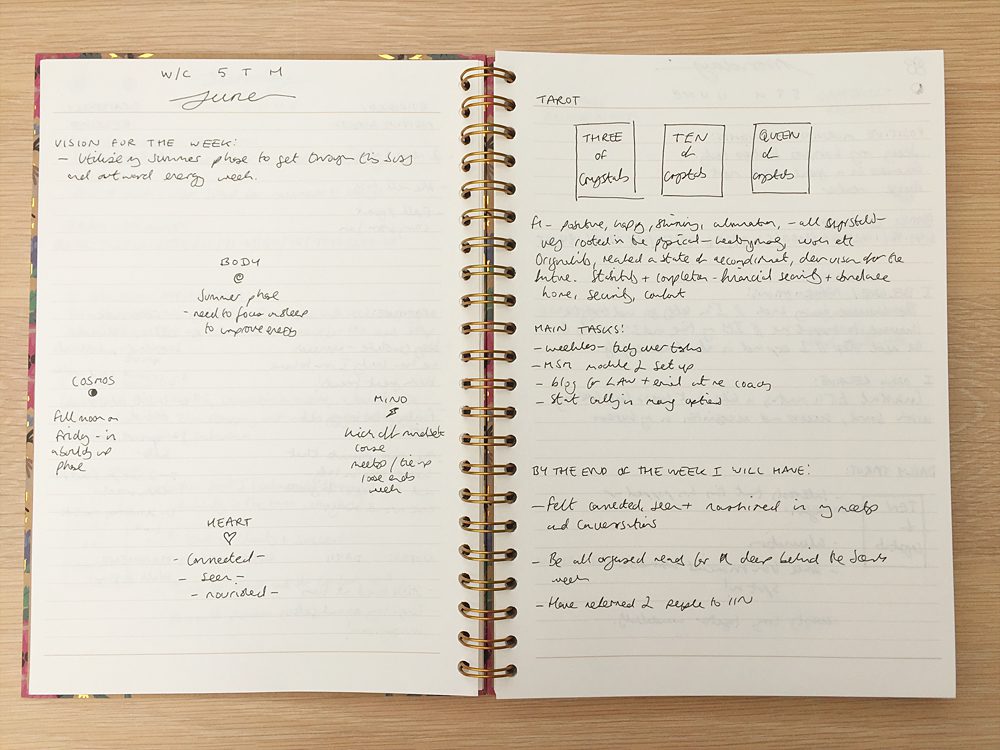 W/C 5TH
June
VISION FOR THE WEEK:
- Utilise my summer phase to get through this busy
and outward energy week.
BODY
Summer phase
- need to focus on sleep
to improve energy
COSMOS
full moon on
Friday - in
a building up
phase
MIND
kick off mindset
course
meetup / tie up
loose ends
week
HEART
- Connected -
- Seen -
- nourished -
TAROT
THREE
of
Crystals
TEN
of
crystals
QUEEN
of
crystals
positive, happy, shining, culmination, - all crystals -
very rooted in the physical - money, work etc
Originality, reached a state of accomplishment, clear vision for the
future. + completion - financial security + abundance
home, security, comfort
MAIN TASKS:
- weeklies - tidy over tasks
- MSM module 2 set up
- blog for LAW + email coach
- Start calling in money options
BY THE END OF THE WEEK I WILL HAVE:
- Felt connected, seen + nourished in my meetups
and conversations
- Be all organised ready for a deep behind the scenes
week
- Have referred 2 people to IIN